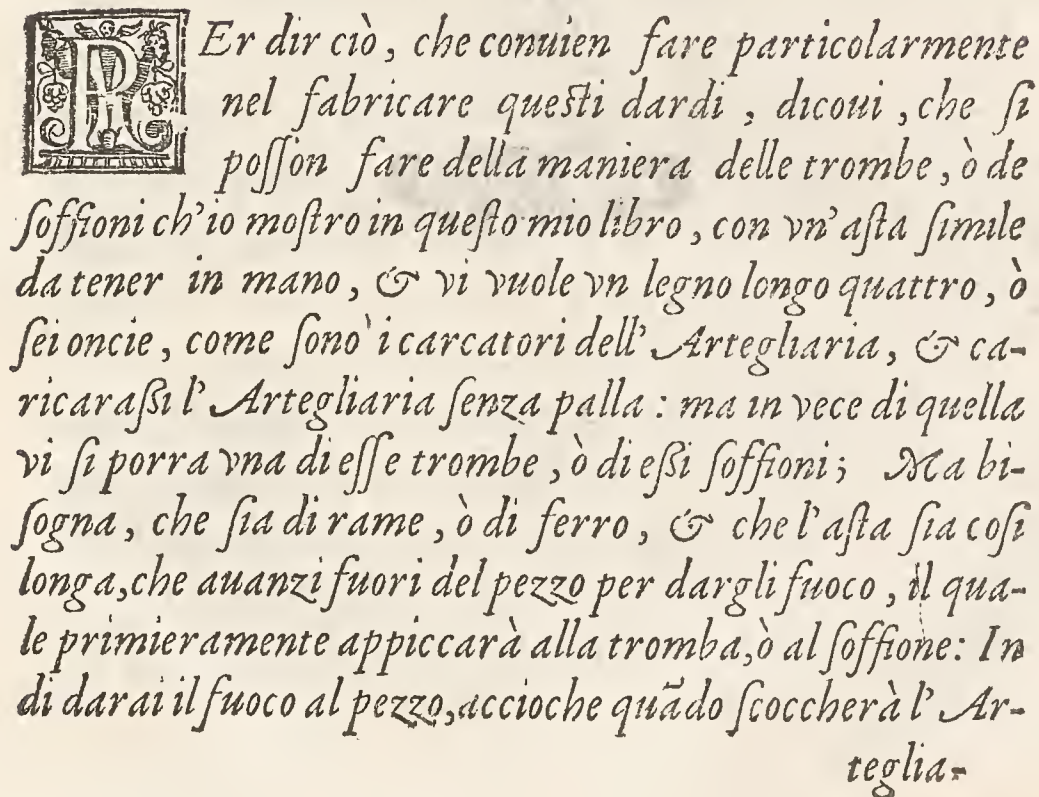 PEr dir ciò, che conuien fare particolarmente
nel fabricare queſti dardi, dicoui, che ſi
poſſon fare della maniera delle trombe, ò de
ſoffioni ch'io moſtro in queſto mio libro, con vn'aſta ſimile
da tener in mano, & vi vuole vn legno longo quattro, ò
ſei oncie, come ſono i carcatori dell'Artegliaria, & ca-
ricaraßi l'Artegliaria ſenza palla: ma in vece di quella
vi ſi porra vna di eſſe trombe, ò di eßi ſoffioni; Ma bi-
ſogna, che ſia di rame, ò di ferro, & che l'aſta ſia coſi
longa, che auanzi fuori del pezzo per dargli fuoco, il qua-
le primieramente appiccarà alla tromba, ò al ſoffione: In
di darai il fuoco al pezzo, accioche quãdo ſcoccherà l'Ar-
teglia-